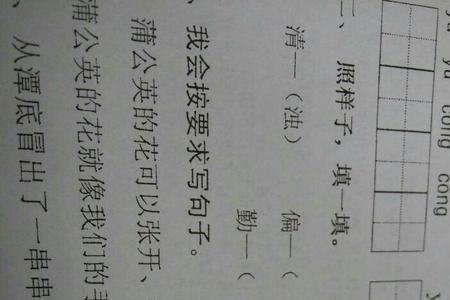 cong cong
、照样子，填一填。
清—（浊） 偏—（
勤—（
、我会按要求写句子。
蒲公英的花可以张开、
蒲公英的花就像我们的
、从潭底冒出了一串串